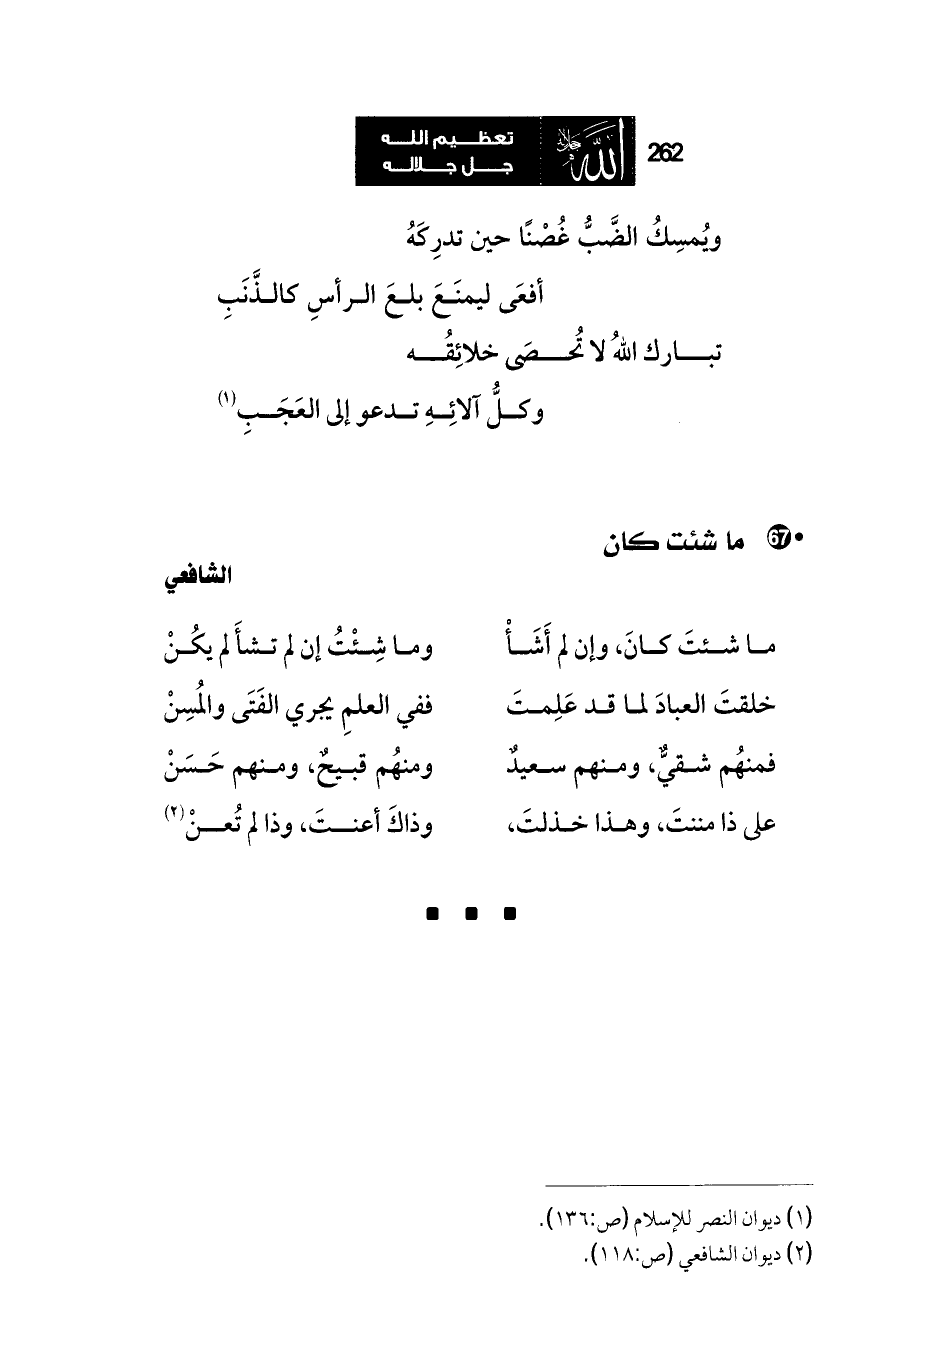 262
الله جل جلاله
تعظيم الله
جل جلاله
ويُمسِكُ الضَّبُّ غُصْنًا حين تدرِكَهُ
أفعَى ليمنَعَ بلعَ الرأسِ كالذَّنَبِ
تبارك اللهُ لا تُحصَى خلائِقُه
وكلُّ آلائِهِ تدعو إلى العَجَبِ(١)
• 67 ما شئت كان
الشافعي
ما شئتَ كانَ، وإن لم أَشَأْ وما شِئْتُ إن لم تشأ لم يكُنْ
خلقتَ العبادَ لما قد عَلِمتَ ففي العلمِ يجري الفَتَى والمُسِنْ
فمنهُم شقيٌّ، ومنهم سعيدٌ ومنهُم قبيحٌ، ومنهم حَسَنْ
على ذا مننتَ، وهذا خذلتَ، وذاكَ أعنتَ، وذا لم تُعنْ(٢)
(١) ديوان النصر للإسلام (ص:١٣٦).
(٢) ديوان الشافعي (ص:١١٨).